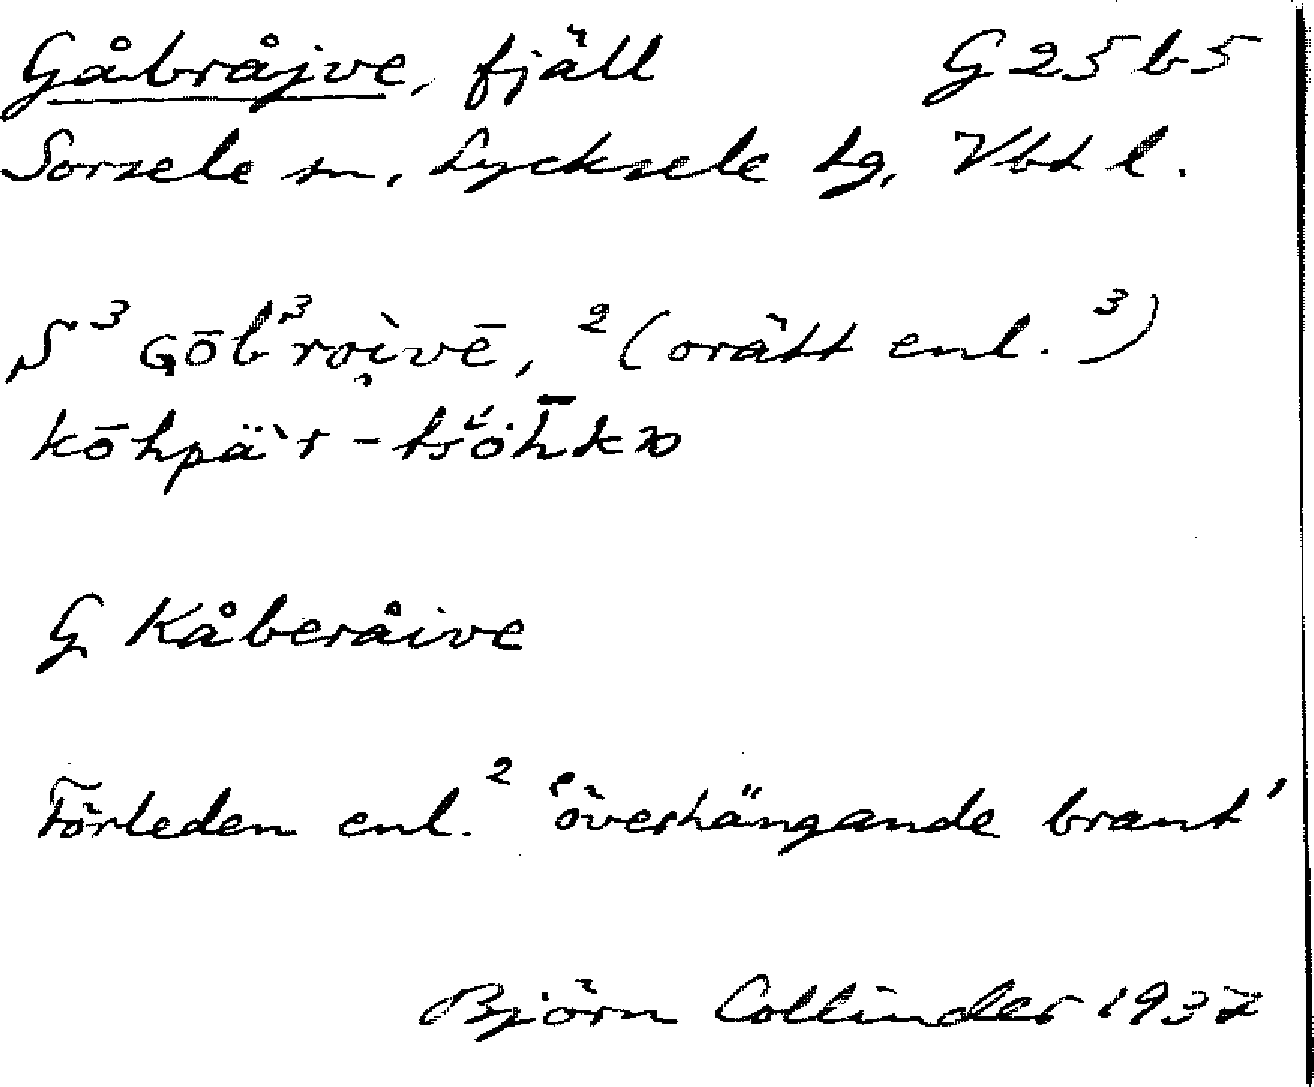 Gåbråjve, fjäll G 25 b 5
Sorsele sn, Lycksele lg, Vbtl.
S ³ Gōb³roi̯vē, ² (orätt enl. ³)
kōhpä`r -
G Kåberåive
Förleden enl. ² 'överhängande brant'
Björn Collinder 1937